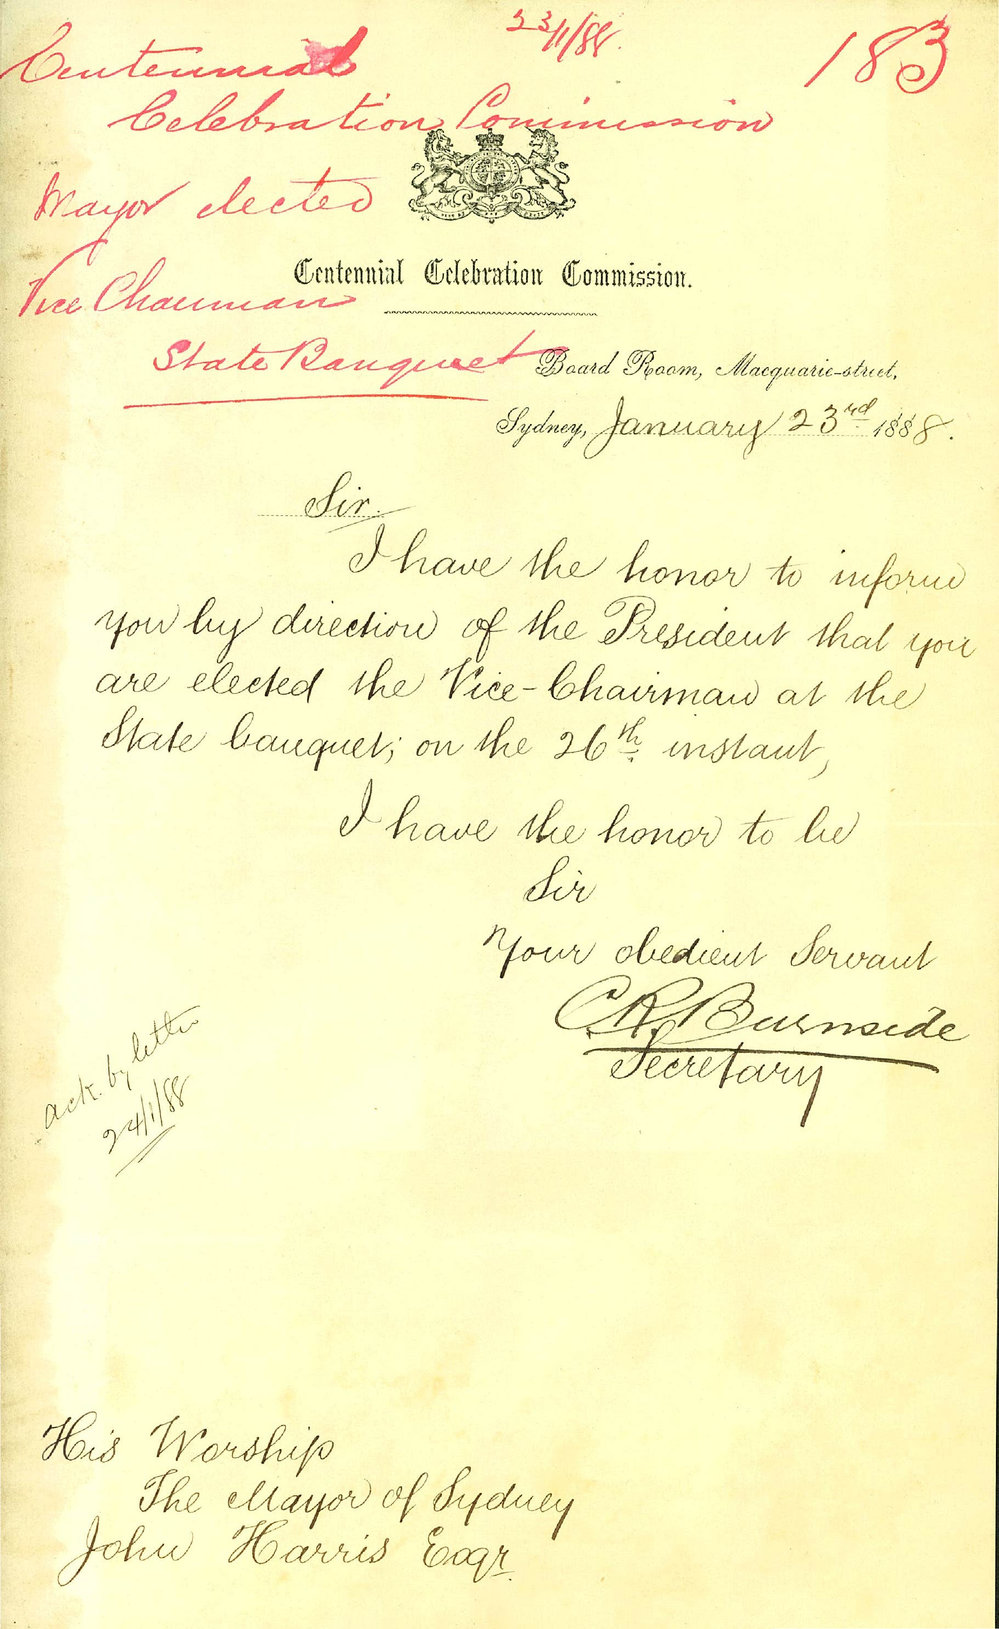 23/1/88.
183
Centennial
Celebration Commission
Mayor elected
Vice Chairman
State Banquet
Centennial Celebration Commission.
Board Room, Macquarie-street,
Sydney, January 23rd 1888.
Sir.
I have the honor to inform
you by direction of the President that you
are elected the Vice-Chairman at the
State banquet; on the 26th instant,
I have the honor to be
Sir
Your obedient Servant
C. R. Burnside
Secretary
ack. by letter
24/1/88
His Worship
The Mayor of Sydney
John Harris Esqr.